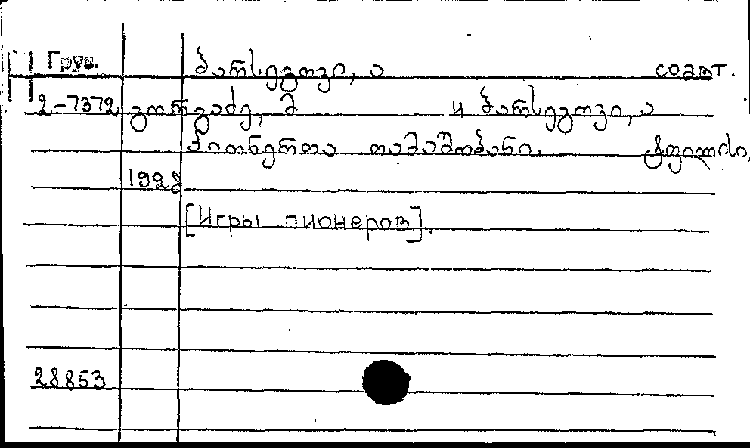 Груз. ბარსეგოვი, ა соавт.
2-7372 გორგაძე, მ и ბარსეგოვი, ა
პიონერთა თამაშობანი. ტფილისი,
1928
[Игры пионеров].
28853